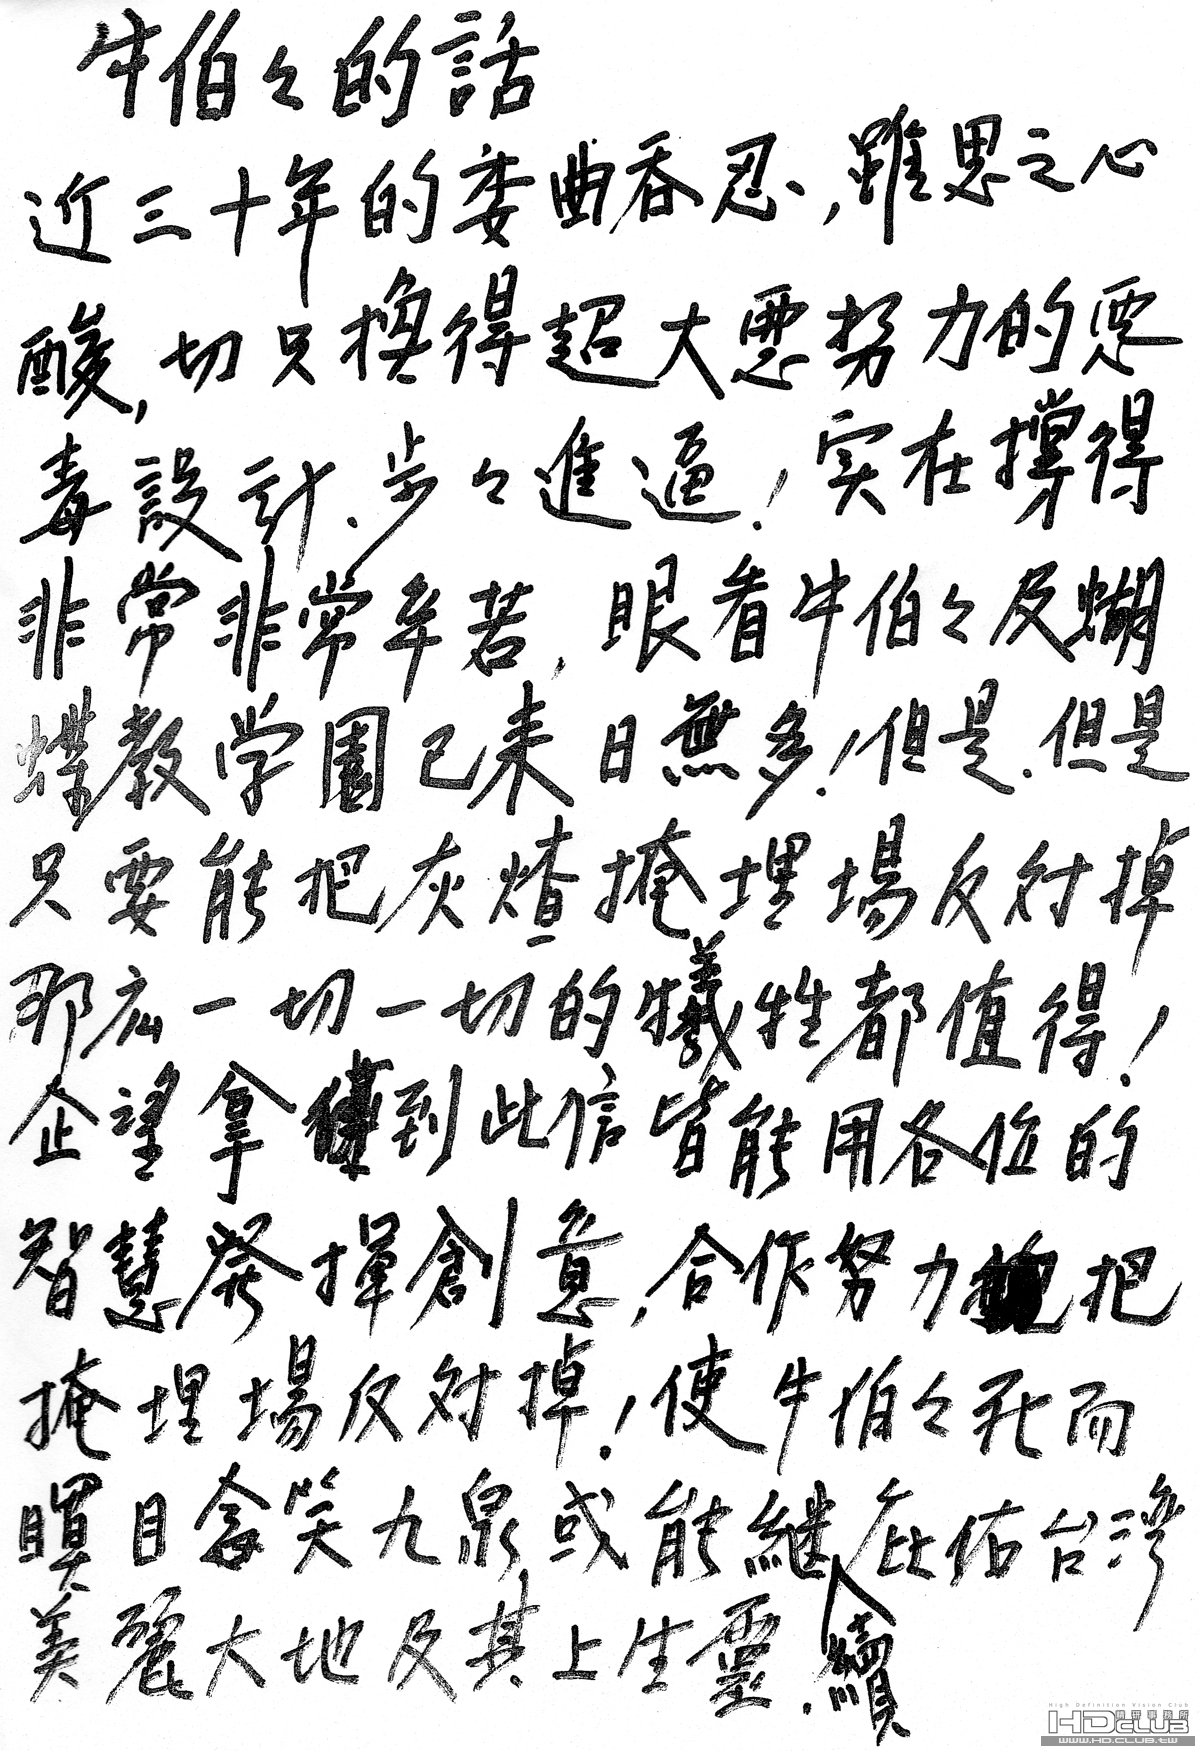 牛伯々的話
近三十年的委曲吞忍，雖思之心
酸，一切只換得超大惡勢力的惡
毒設計、步々進逼！実在撐得
非常非常辛苦，眼看牛伯々及蝴
蝶教学園已来日無多！但是、但是
只要能把灰燼掩埋場反対掉
那広一切一切的犧牲都值得！
企望拿到此信皆能用各位的
智慧発揮創意，合作努力把
掩埋場反対掉！使牛伯々死而
瞑目含笑九泉或能継續庇佑台灣
美麗大地及其上生靈．
High Definition Vision Club
HDCLUB 精研事務所
WWW.HD.CLUB.TW